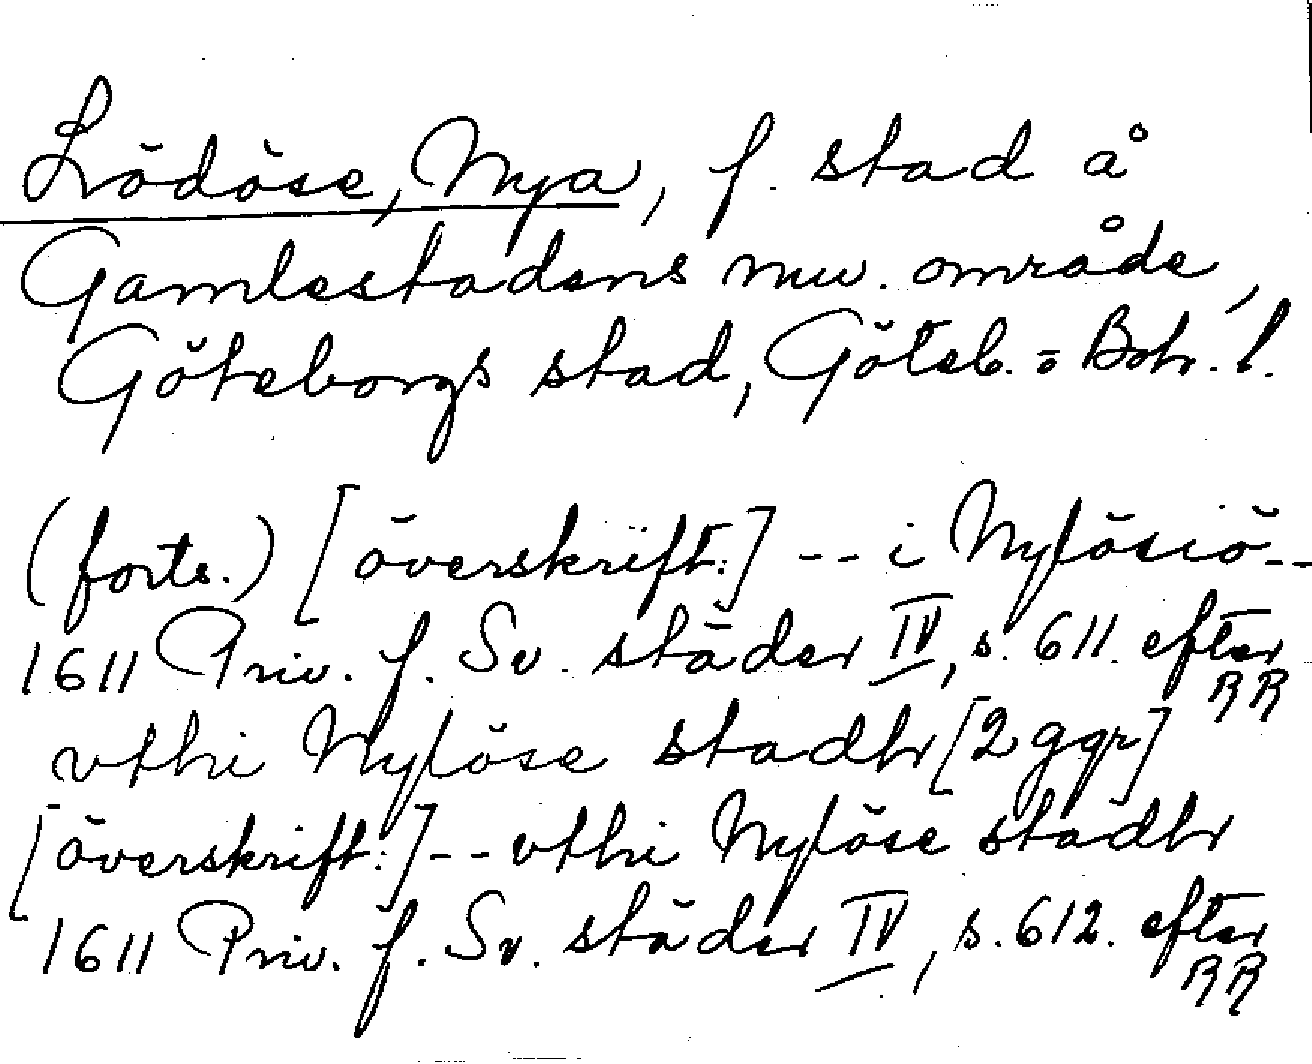 Lödöse, Nya, f. stad å
Gamlestadens nuv. område,
Göteborgs stad, Göteb. o Boh. l.
(forts.) [överskrift:] -- i Nylösiö --
1611 Priv. f. Sv. städer IV, s. 611. efter RR
vthi Nylöse stadh [2 ggr]
[överskrift:] -- vthi Nylöse stadh
1611 Priv. f. Sv. städer IV, s. 612. efter RR